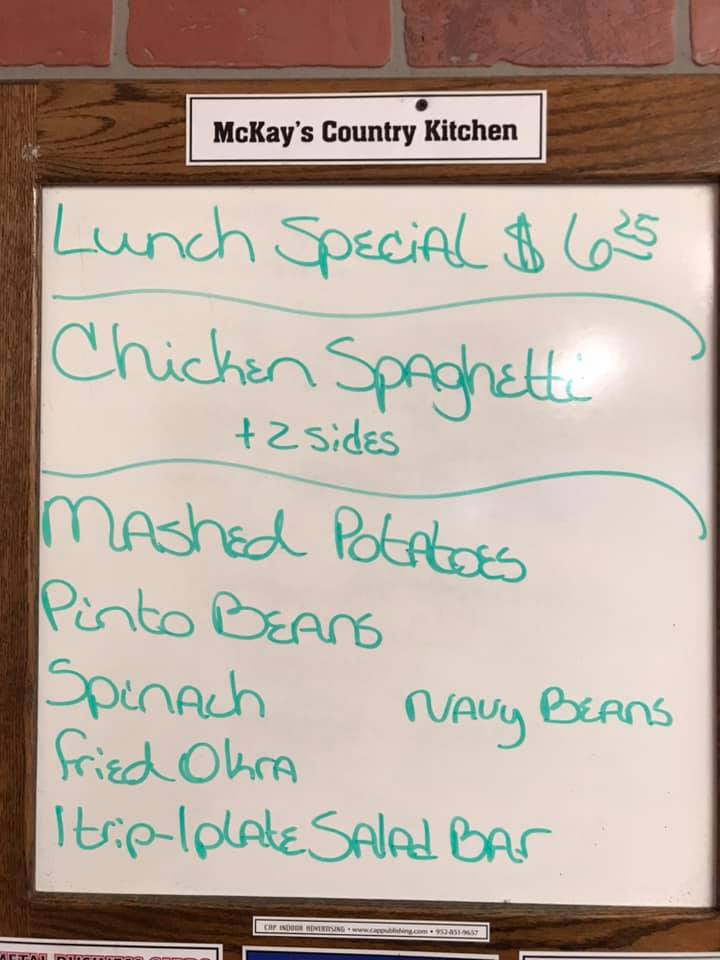 McKay's Country Kitchen
Lunch Special $6.25
Chicken Spaghetti
+2 sides
Mashed Potatoes
Pinto Beans
Spinach
Navy Beans
Fried Okra
1 trip-1 plate Salad Bar
CAP INDOOR ADVERTISING • www.cappublishing.com • 952-851-9657